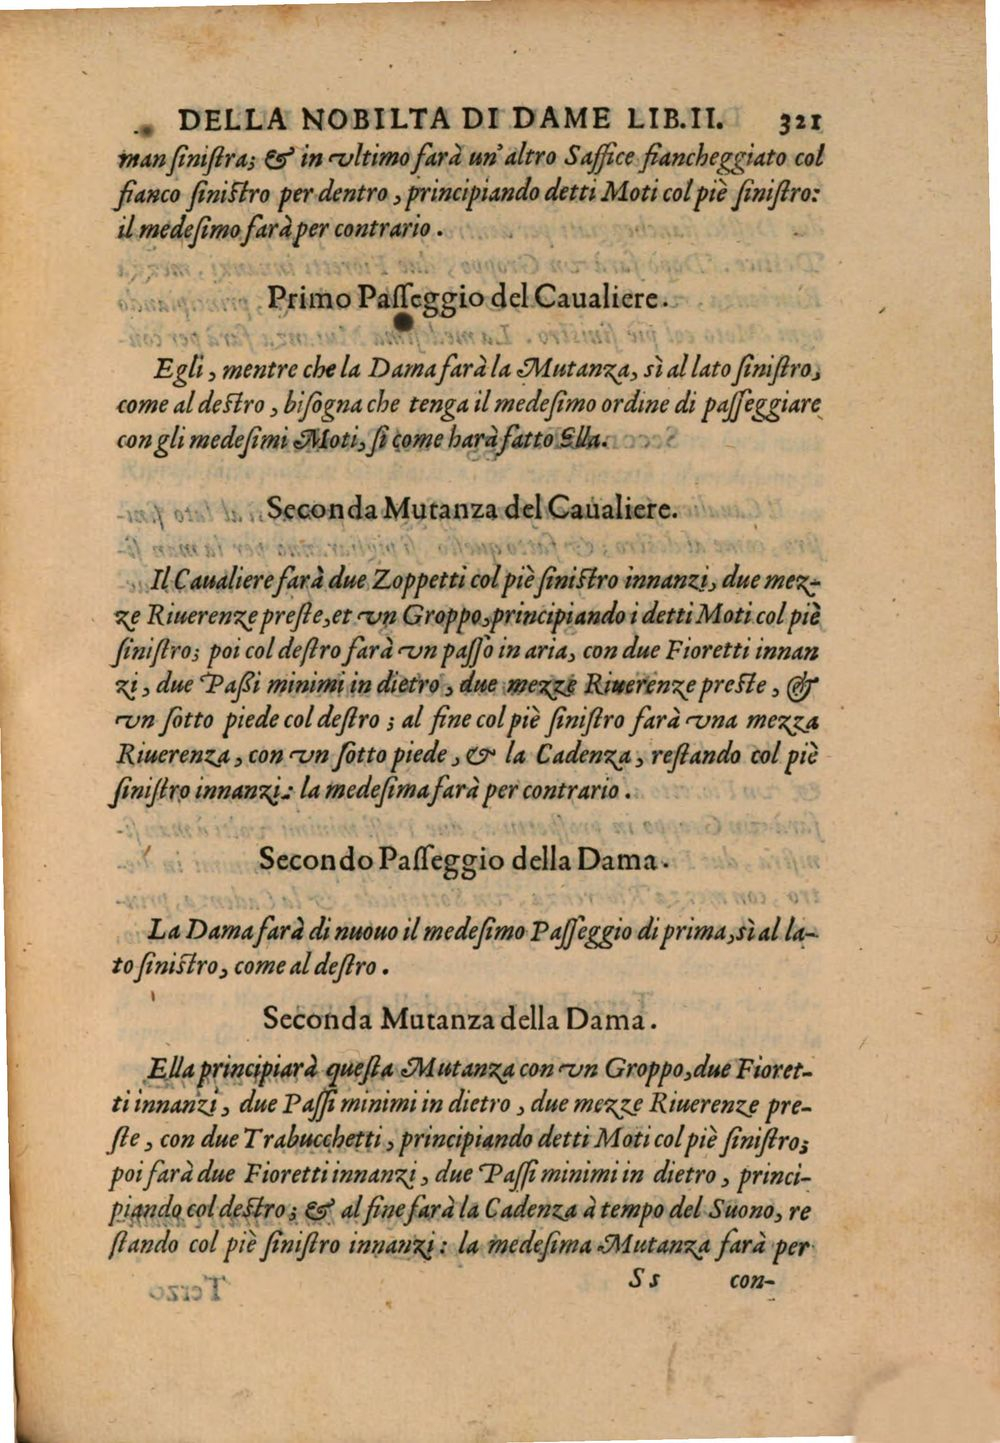 DELLA NOBILTA DI DAME LIB.II. 321
man ſiniſtra; & in vltimo farà un'altro Saffice fiancheggiato col
fianco ſiniſtro per dentro, principiando detti Moti col piè ſiniſtro:
il medeſimo farà per contrario.
Primo Paſſeggio del Caualiere.
Egli, mentre che la Dama farà la Mutanza, sì al lato ſiniſtro,
come al deſtro, biſogna che tenga il medeſimo ordine di paſſeggiare
con gli medeſimi Moti, ſi come harà fatto Ella.
Seconda Mutanza del Caualiere.
Il Caualiere farà due Zoppetti col piè ſiniſtro innanzi, due mez-
ze Riuerenze preſte, et vn Groppo, principiando i detti Moti col piè
ſiniſtro; poi col deſtro farà vn paſſo in aria, con due Fioretti innan
zi, due Paßi minimi in dietro, due mezze Riuerenze preſte, &
vn ſotto piede col deſtro; al fine col piè ſiniſtro farà vna mezza
Riuerenza, con vn ſotto piede, & la Cadenza, reſtando col piè
ſiniſtro innanzi: la medeſima farà per contrario.
Secondo Paſſeggio della Dama.
La Dama farà di nuouo il medeſimo Paſſeggio di prima, sì al la-
to ſiniſtro, come al deſtro.
Seconda Mutanza della Dama.
Ella principiarà queſta Mutanza con vn Groppo, due Fioret-
ti innanzi, due Paſſi minimi in dietro, due mezze Riuerenze pre-
ſte, con due Trabucchetti, principiando detti Moti col piè ſiniſtro;
poi farà due Fioretti innanzi, due Paſſi minimi in dietro, princi-
piando col deſtro; & al fine farà la Cadenza à tempo del Suono, re
ſtando col piè ſiniſtro innanzi: la medeſima Mutanza farà per
Ss con-